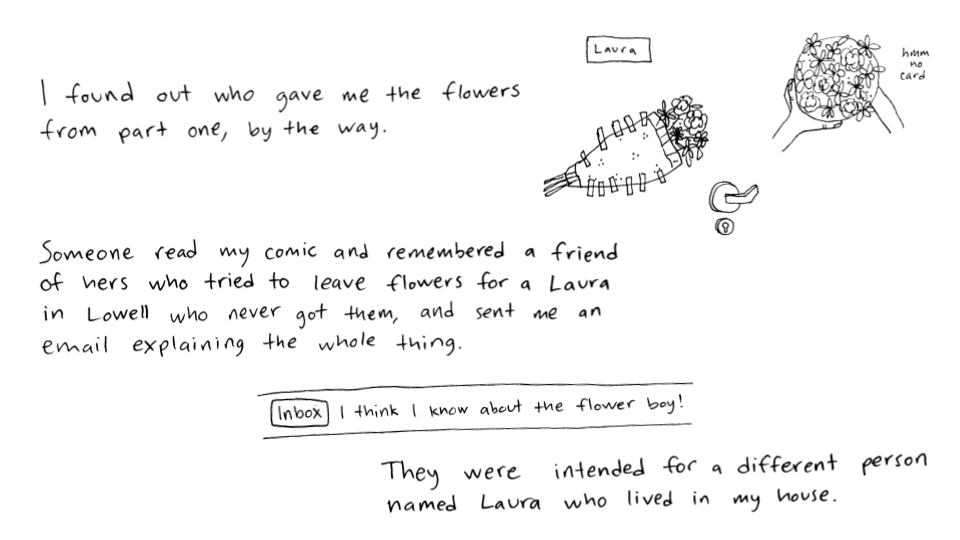 Laura
hmm
no
card
I found out who gave me the flowers
from part one, by the way.
Someone read my comic and remembered a friend
of hers who tried to leave flowers for a Laura
in Lowell who never got them, and sent me an
email explaining the whole thing.
Inbox I think I know about the flower boy!
They were intended for a different person
named Laura who lived in my house.